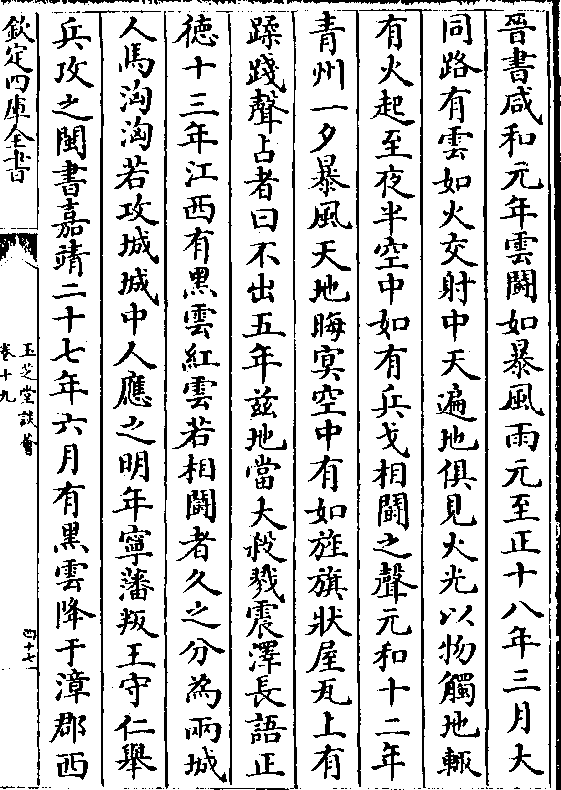 晉書咸和元年雲鬪如暴風雨元至正十八年三月大
同路有雲如火交射中天遍地俱見火光以物觸地輒
有火起至夜半空中如有兵戈相鬪之聲元和十二年
青州一夕暴風天地晦㝠空中有如旌旗狀屋瓦上有
蹂踐聲占者曰不出五年兹地當大殺戮震澤長語正
徳十三年江西有黑雲紅雲若相鬪者久之分為兩城
人馬洶洶若攻城城中人應之明年寧藩叛王守仁舉
兵攻之閩書嘉靖二十七年六月有黑雲降于漳郡西
欽定四庫全書
玉芝堂談薈
卷十九
四十七